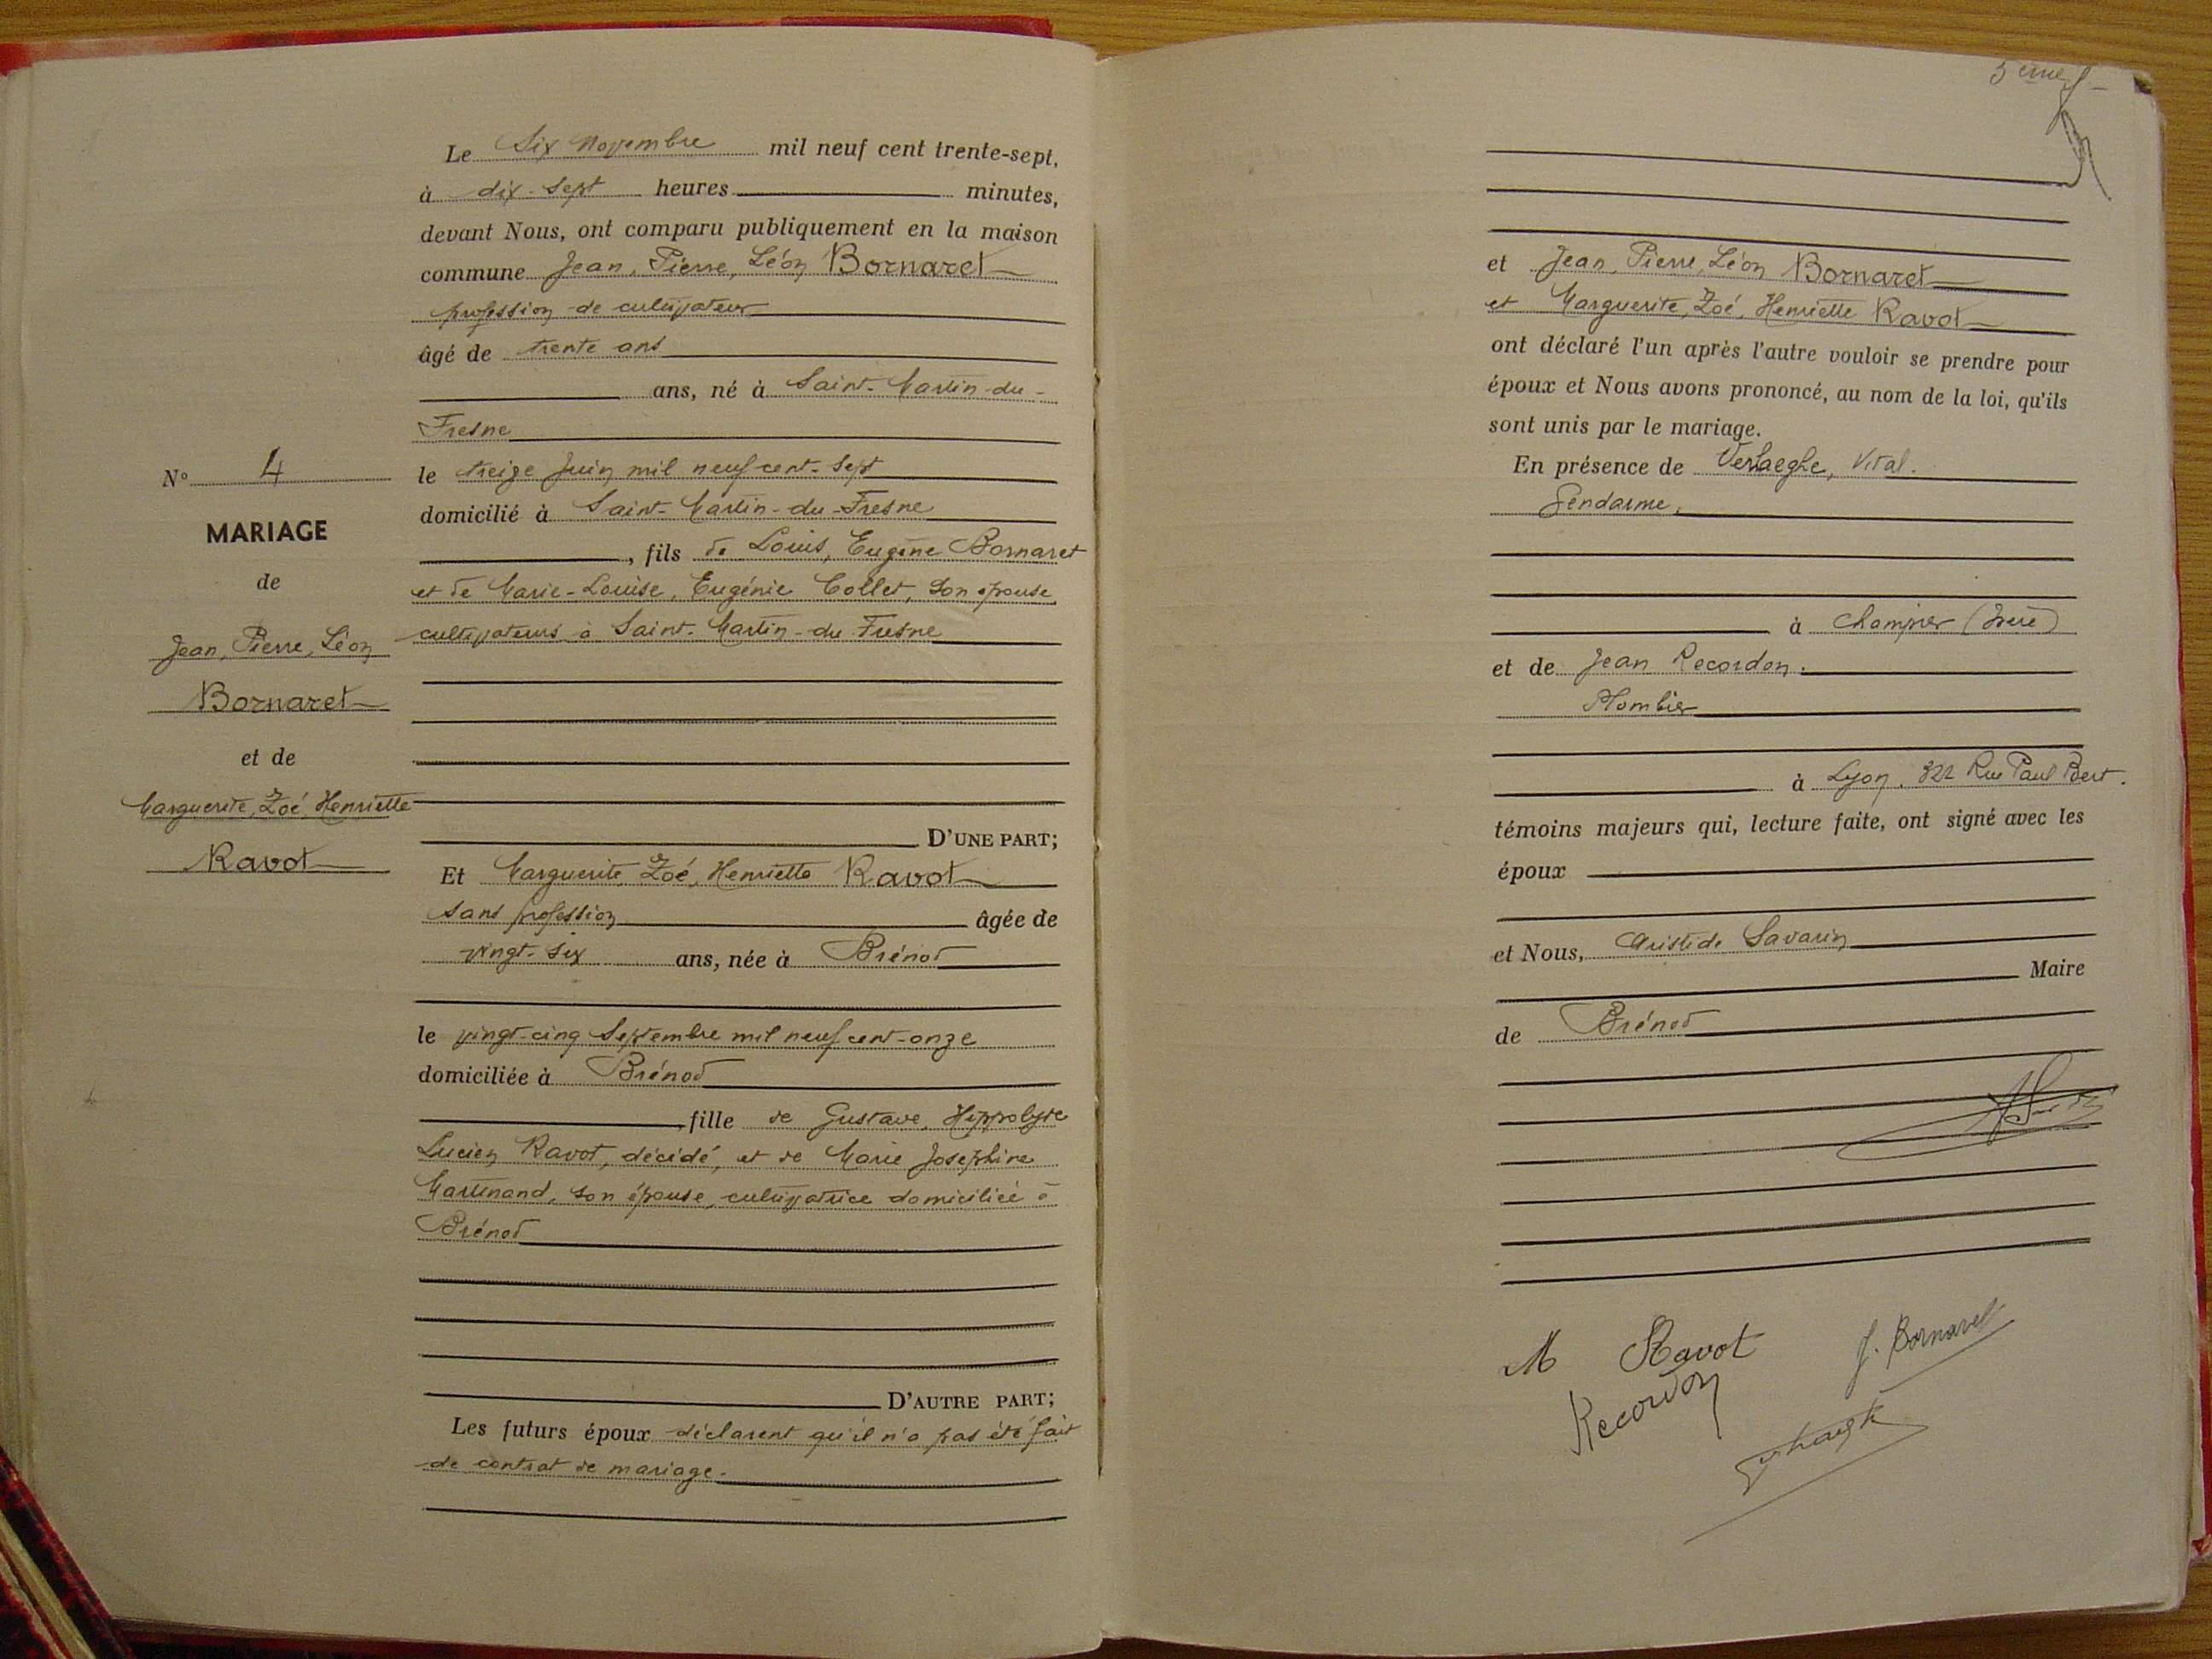 Le Six Novembre mil neuf cent trente-sept,
à dix-sept heures minutes,
devant Nous, ont comparu publiquement en la maison
commune Jean, Pierre, Léon Bornaret
profession de cultivateur
âgé de trente ans
ans, né à Saint-Martin-du-
Fresne
le treize Juin mil neuf cent-sept
domicilié à Saint-Martin-du-Fresne
, fils de Louis, Eugène Bornaret
et de Marie-Louise, Eugénie Collet, son épouse,
cultivateurs à Saint-Martin-du-Fresne
D'UNE PART;
Et Marguerite, Zoé, Henriette Ravot
sans profession âgée de
vingt-six ans, née à Brénod
le vingt-cinq Septembre mil neuf cent-onze
domiciliée à Brénod
, fille de Gustave, Hippolyte
Lucien Ravot, décédé, et de Marie Joséphine
Martinand, son épouse, cultivatrice domiciliée à
Brénod
D'AUTRE PART;
Les futurs époux déclarent qu'il n'a pas été fait
de contrat de mariage.
N° 4
MARIAGE
de
Jean, Pierre, Léon
Bornaret
et de
Marguerite, Zoé, Henriette
Ravot
5ème
et Jean, Pierre, Léon Bornaret
et Marguerite, Zoé, Henriette Ravot
ont déclaré l'un après l'autre vouloir se prendre pour
époux et Nous avons prononcé, au nom de la loi, qu'ils
sont unis par le mariage.
En présence de Verhaeghe, Vital.
Gendarme,
à Champier (Isère)
et de Jean Recordon.
Plombier
à Lyon. 322 Rue Paul Bert.
témoins majeurs qui, lecture faite, ont signé avec les
époux
et Nous, Aristide Savarin
Maire
de Brénod
M Ravot
J. Bornaret
Recordon